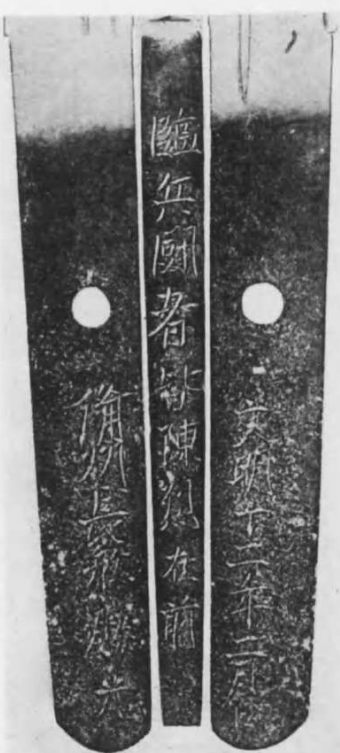 文明十二年二月日
臨兵闘者皆陳列在前
備州長船勝光